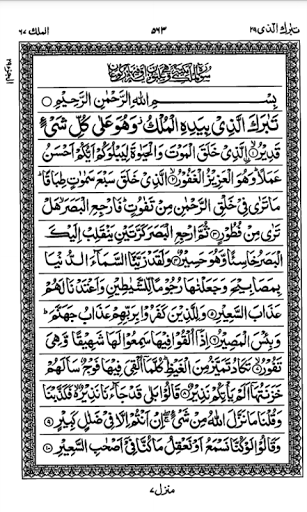 تبرك الذی ٢٩
٥٦٣
الملك ٦٧
بِسْمِ اللهِ الرَّحْمٰنِ الرَّحِيْمِ
تَبٰرَكَ الَّذِیْ بِيَدِهِ الْمُلْكُ وَهُوَ عَلٰى كُلِّ شَیْءٍ
قَدِيْرُ ۙ الَّذِیْ خَلَقَ الْمَوْتَ وَالْحَيٰوةَ لِيَبْلُوَكُمْ اَيُّكُمْ اَحْسَنُ
عَمَلًا ؕ وَهُوَ الْعَزِيْزُ الْغَفُوْرُ ۙ الَّذِیْ خَلَقَ سَبْعَ سَمٰوٰتٍ طِبَاقًا ؕ
مَا تَرٰى فِیْ خَلْقِ الرَّحْمٰنِ مِنْ تَفٰوُتٍ ؕ فَارْجِعِ الْبَصَرَ هَلْ
تَرٰى مِنْ فُطُوْرٍ ۝ ثُمَّ ارْجِعِ الْبَصَرَ كَرَّتَيْنِ يَنْقَلِبْ اِلَيْكَ
الْبَصَرُ خَاسِئًا وَّهُوَ حَسِيْرٌ ۝ وَلَقَدْ زَيَّنَّا السَّمَآءَ الدُّنْيَا
بِمَصَابِيْحَ وَجَعَلْنٰهَا رُجُوْمًا لِّلشَّيٰطِيْنِ وَاَعْتَدْنَا لَهُمْ
عَذَابَ السَّعِيْرِ ۝ وَلِلَّذِيْنَ كَفَرُوْا بِرَبِّهِمْ عَذَابُ جَهَنَّمَ ؕ
وَبِئْسَ الْمَصِيْرُ ۝ اِذَآ اُلْقُوْا فِيْهَا سَمِعُوْا لَهَا شَهِيْقًا وَّهِیَ
تَفُوْرُ ۙ تَكَادُ تَمَيَّزُ مِنَ الْغَيْظِ ؕ كُلَّمَآ اُلْقِیَ فِيْهَا فَوْجٌ سَاَلَهُمْ
خَزَنَتُهَآ اَلَمْ يَاْتِكُمْ نَذِيْرٌ ۝ قَالُوْا بَلٰى قَدْ جَآءَنَا نَذِيْرٌ ۙ فَكَذَّبْنَا
وَقُلْنَا مَا نَزَّلَ اللهُ مِنْ شَیْءٍ ۚ اِنْ اَنْتُمْ اِلَّا فِیْ ضَلٰلٍ كَبِيْرٍ ۝
وَقَالُوْا لَوْ كُنَّا نَسْمَعُ اَوْ نَعْقِلُ مَا كُنَّا فِیْٓ اَصْحٰبِ السَّعِيْرِ ۝
منزل ٧